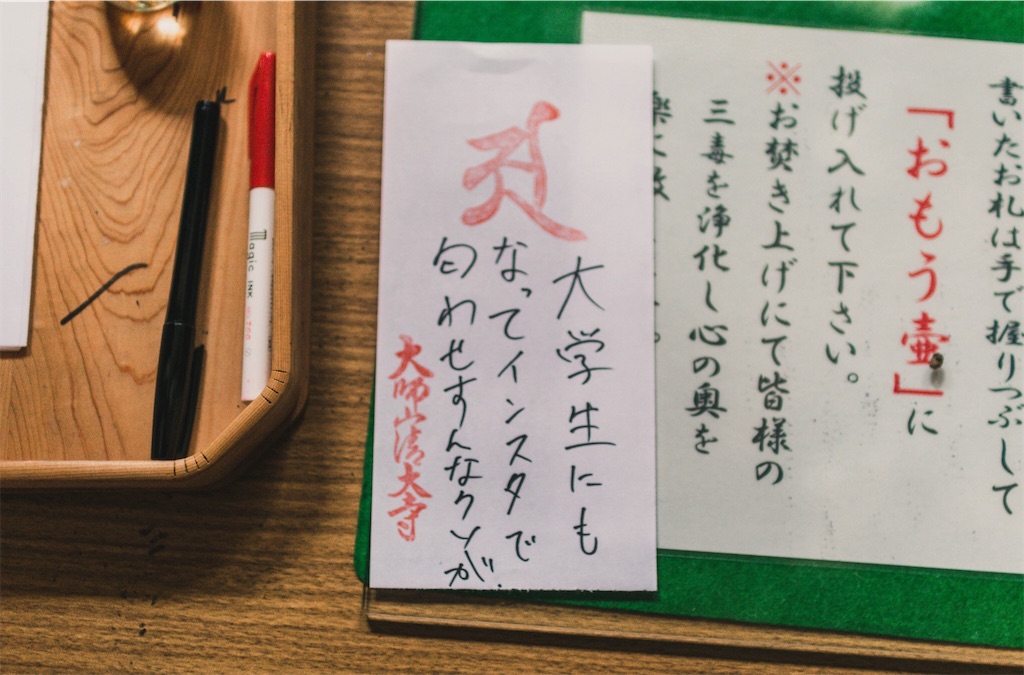 書いたお札は手で握りつぶして
「おもう壷」に
投げ入れて下さい。
※お焚き上げにて皆様の
三毒を浄化し心の奥を
大学生にも
なってインスタで
匂わせすんなクソが
大師山清大寺
Magic INK